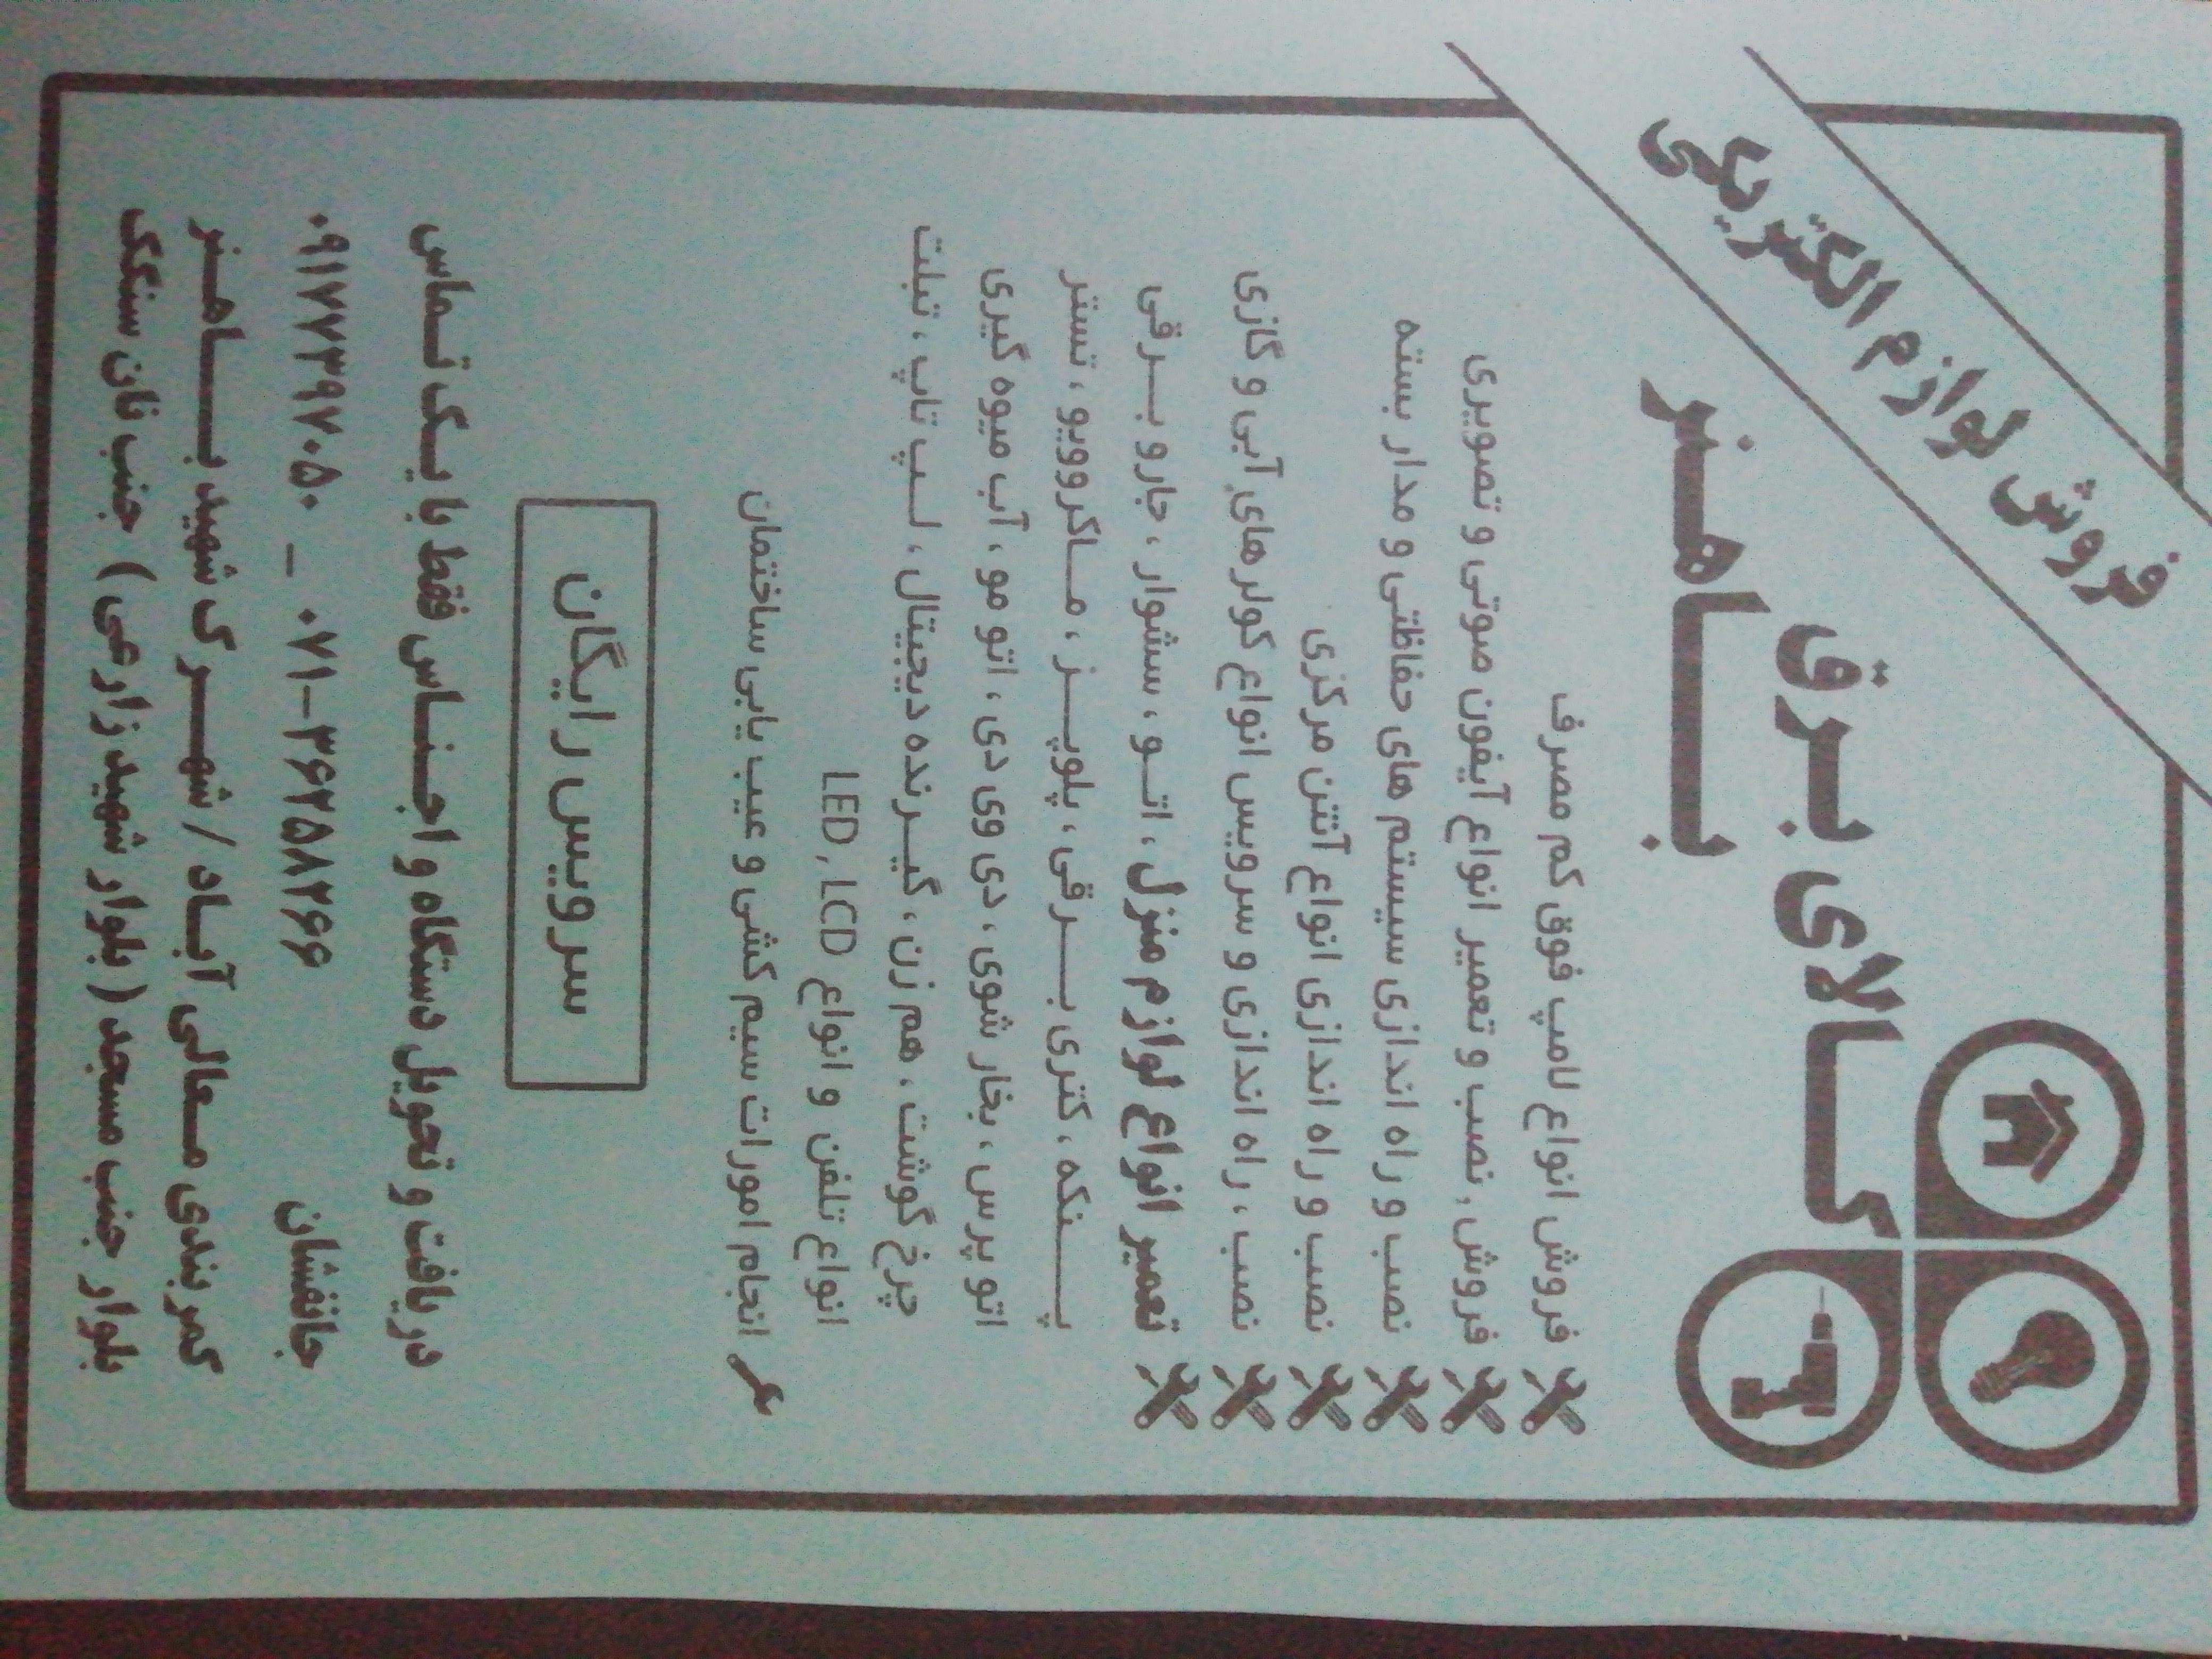 فروش لوازم الکتریکی
کالای برق
باهنر
فروش انواع لامپ فوق کم مصرف
فروش ، نصب و تعمیر انواع آیفون صوتی و تصویری
نصب و راه اندازی سیستم های حفاظتی و مدار بسته
نصب و راه اندازی انواع آنتن مرکزی
نصب ، راه اندازی و سرویس انواع کولرهای آبی و گازی
تعمیر انواع لوازم منزل ، اتو ، سشوار ، جارو برقی
پنکه ، کتری برقی ، پلوپز ، ماکروویو ، تستر
اتو پرس ، بخار شوی ، دی وی دی ، اتو مو ، آب میوه گیری
چرخ گوشت ، هم زن ، گیرنده دیجیتال ، لپ تاپ ، تبلت
انواع تلفن و انواع LED, LCD
انجام امورات سیم کشی و عیب یابی ساختمان
سرویس رایگان
دریافت و تحویل دستگاه و اجناس فقط با یک تماس
جانفشان ۰۷۱-۳۶۲۵۸۲۶۶ _ ۰۹۱۷۷۳۹۷۰۵۰
کمربندی معالی آباد / شهرک شهید باهنر
بلوار جنب مسجد ( بلوار شهید زارعی ) جنب نان سنگک